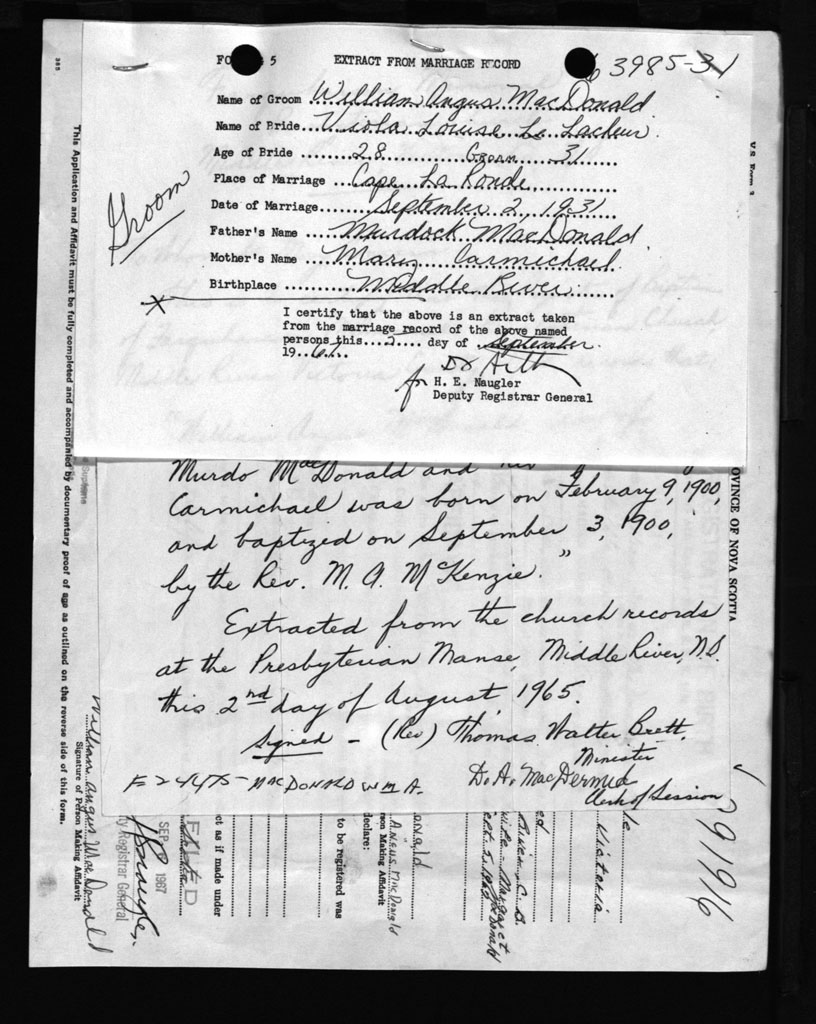 FO 5 EXTRACT FROM MARRIAGE RECORD 3985-31
Name of Groom William Angus MacDonald
Name of Bride Viola Louise Le Lacheur
Age of Bride 28 Groom 31
Place of Marriage Cape La Ronde
Date of Marriage September 2, 1931
Father's Name Murdock MacDonald
Mother's Name Mary Carmichael
Birthplace Middle River
Groom
I certify that the above is an extract taken
from the marriage record of the above named
persons this 2 day of September
19
for H. E. Naugler
Deputy Registrar General
Murdo MacDonald and
Carmichael was born on February 9, 1900,
and baptized on September 3, 1900,
by the Rev. M. A. McKenzie."
Extracted from the church records
at the Presbyterian Manse, Middle River, N.S.
this 2nd day of August, 1965.
Signed - (Rev) Thomas Walter Brett,
Minister
D. A. MacDermid
Clerk of Session
F 24475 - MACDONALD WM A.
This Application and Affidavit must be fully completed and accompanied by documentary proof of age as outlined on the reverse side of this form.
William Angus MacDonald
Signature of Person Making Affidavit
SEP 1967
ty Registrar General
FILED
ct as if made under
to be registered was
declare:
son Making Affidavit
Angus MacDonald
onald
Margaret
Victoria
OVINCE OF NOVA SCOTIA
V.S. Form 3